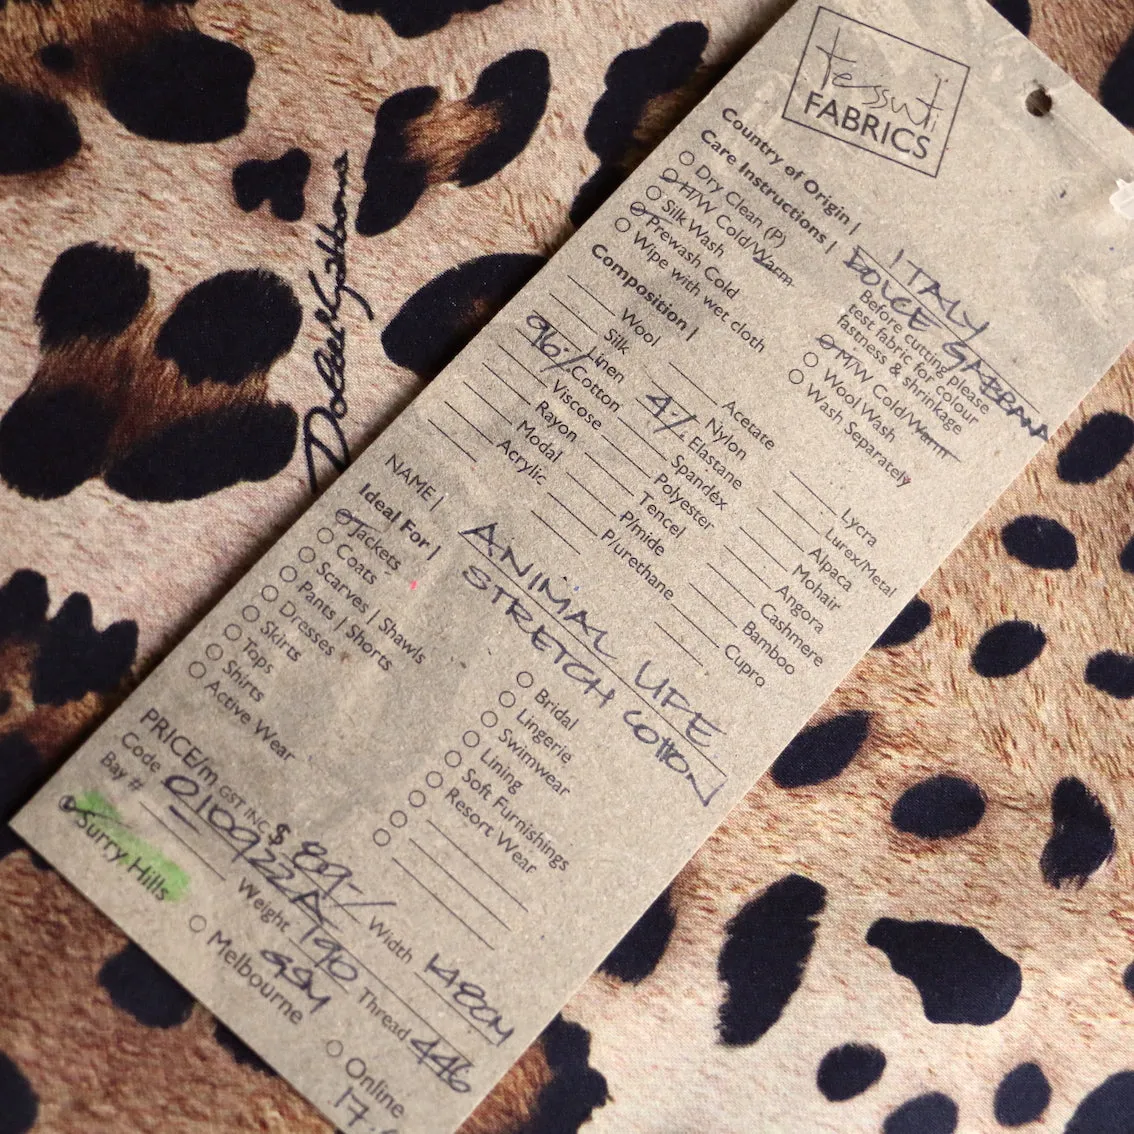 tessuti
FABRICS
Country of Origin | ITALY
Care Instructions | DOLCE GABBANA
Dry Clean (P)
H/W Cold/Warm
Silk Wash
Prewash Cold
Wipe with wet cloth
Before cutting please
test fabric for colour
fastness & shrinkage
M/W Cold/Warm
Wool Wash
Wash Separately
Composition |
Wool
Silk
Linen
96% Cotton
Viscose
Rayon
Modal
Acrylic
Acetate
Nylon
4% Elastane
Spandex
Polyester
Tencel
P/mide
P/urethane
Lycra
Lurex/Metal
Alpaca
Mohair
Angora
Cashmere
Bamboo
Cupro
NAME | ANIMAL LIFE
STRETCH COTTON
Ideal For |
Jackets
Coats
Scarves | Shawls
Pants | Shorts
Dresses
Skirts
Tops
Shirts
Active Wear
Bridal
Lingerie
Swimwear
Lining
Soft Furnishings
Resort Wear
PRICE/m GST INC $ 89-/ Width 148CM
Code 010922A Thread 446
Bay # Weight 190
GSM
Surry Hills
Melbourne
Online
17.
Dolce & Gabbana